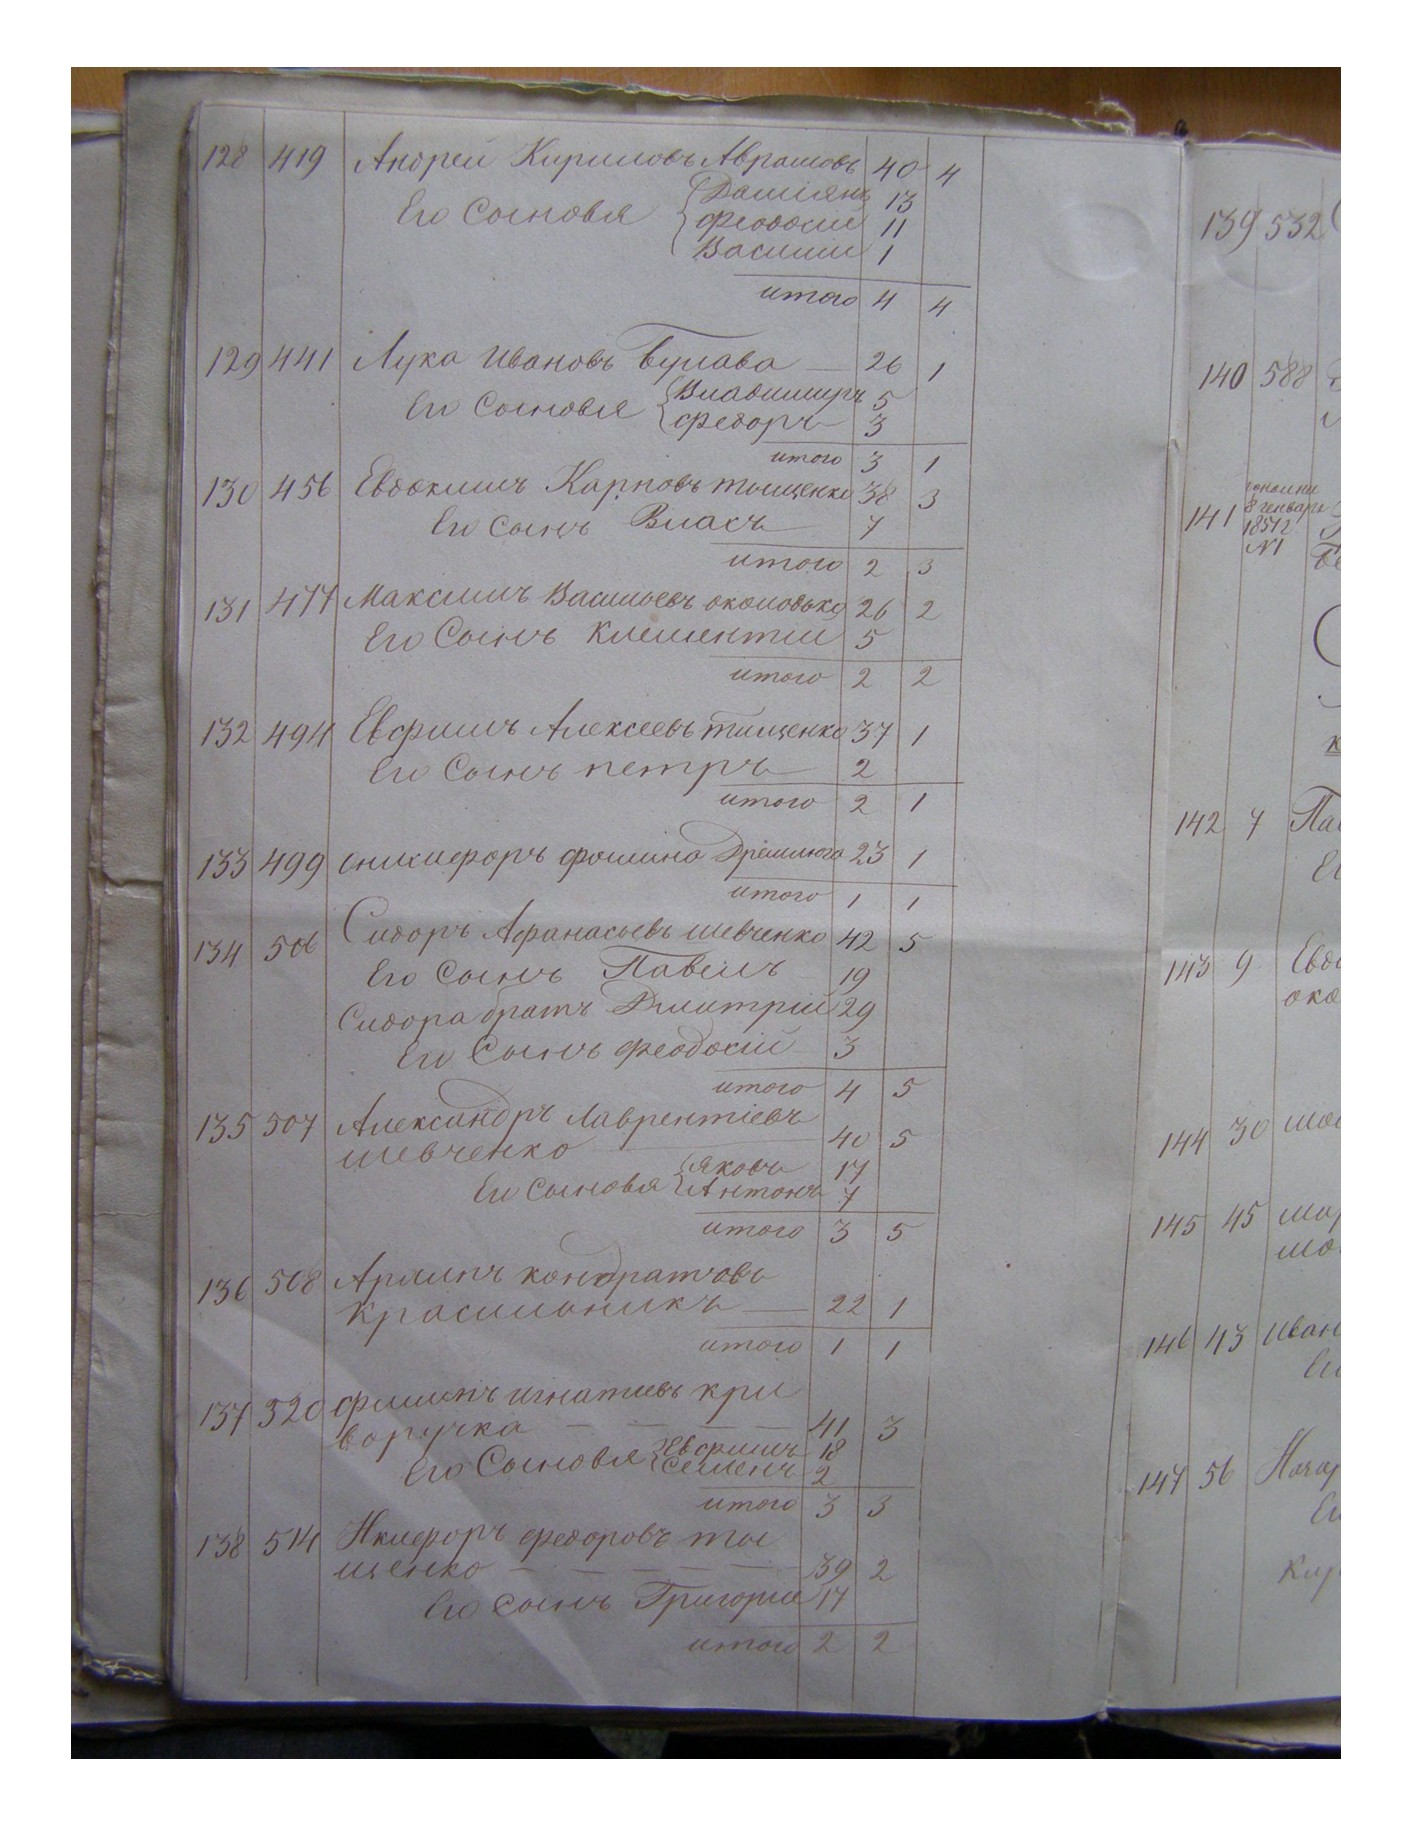 128 419 Андрей Кириловъ Аврамовъ 40 4
Его Сыновья Даміянъ 13
Феодосій 11
Василій 1
итого 4 4
129 441 Лука Ивановъ Булава 26 1
Его Сыновья Владимиръ 5
Федоръ 3
итого 3 1
130 456 Евдокимъ Карповъ тыщенко 38 3
Его Сынъ Власъ 7
итого 2 3
131 477 Максимъ Васильевъ околодько 26 2
Его Сынъ Климентий 5
итого 2 2
132 494 Евфимъ Алексеевъ тищенко 37 1
Его Сынъ петръ 2
итого 2 1
133 499 Фомина 23 1
итого 1 1
134 506 Сидоръ Афанасьевъ шевченко 42 5
Его Сынъ Павелъ 19
Сидора братъ Дмитрій 29
Его Сынъ феодосій 3
итого 4 5
135 507 Александръ Лаврентіевъ
шевченко 40 5
Его Сыновья Яковъ 17
Антонъ 7
итого 3 5
136 508 кондратовъ
Красильникъ 22 1
итого 1 1
137 520 филипъ игнатиевъ кри
воручка 41 3
Его Сыновья Евфимъ 18
Семенъ 2
итого 3 3
138 514 Никифоръ федоровъ ты
щенко 39 2
Его Сынъ Григорий 17
итого 2 2
139 532
140 588
141 8 генваря
1851г
N1
142 7 Пав
Ег
143 9 Евдо
око
144 30
145 45 мар
146 43 иван
Ег
147 56
Ег
Кир